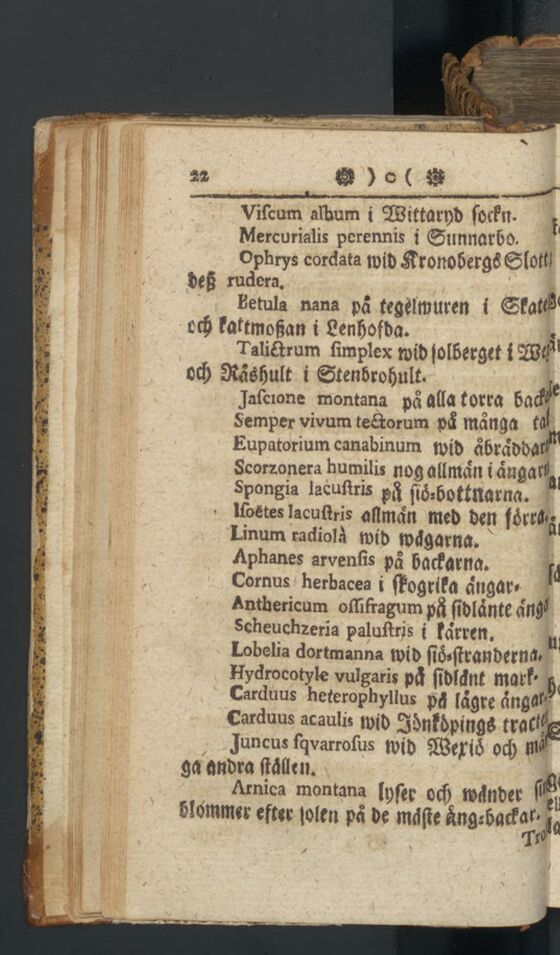 22 ) o (
Viſcum album i Wittaryd ſockn.
Mercurialis perennis i Sunnarbo.
Ophrys cordata wid Kronobergs Slott
deß rudera.
Betula nana på tegelmuren i Skate
och kattmoßan i Lenhofda.
Talictrum ſimplex wid ſolberget i
och Råshult i Stenbrohult.
Jaſcione montana på alla torra back
Semper vivum tectorum på många ta
Eupatorium canabinum wid åbräddar
Scorzonera humilis nog allmän i ängar
Spongia lacuſtris på ſiö-bottnarna.
Iſoëtes lacuſtris allmän med den förra.
Linum radiolà wid wägarna.
Aphanes arvenſis på backarna.
Cornus herbacea i ſkogrika ängar.
Anthericum oſſifragum på ſidlänte äng
Scheuchzeria paluſtris i kärren.
Lobelia dortmanna wid ſiö-ſtranderna.
Hydrocotyle vulgaris på ſidlänt mark.
Carduus heterophyllus på lägre ängar.
Carduus acaulis wid Jönköpings tracte
Juncus ſqvarroſus wid Wexiö och må
ga andra ſtällen.
Arnica montana lyſer och wänder ſin
blommer efter ſolen på de mäſte äng-backar.
Tro